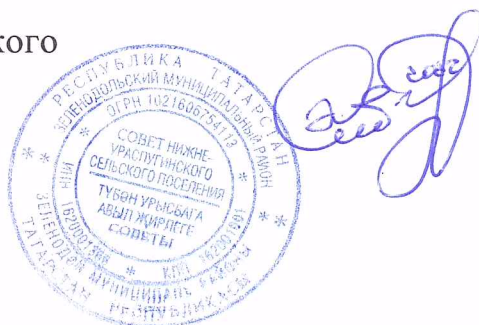 кого
РЕСПУБЛИКА ТАТАРСТАН
ЗЕЛЕНОДОЛЬСКИЙ МУНИЦИПАЛЬНЫЙ РАЙОН
ОГРН 1021606754113
СОВЕТ НИЖНЕ-
УРАСПУГИНСКОГО
СЕЛЬСКОГО ПОСЕЛЕНИЯ
ТҮБӘН УРЫСБАГА
АВЫЛ ҖИРЛЕГЕ
СОВЕТЫ
ИНН
КПП
МУНИЦИПАЛЬ РАЙОНЫ
ТАТАРСТАН РЕСПУБЛИКАСЫ